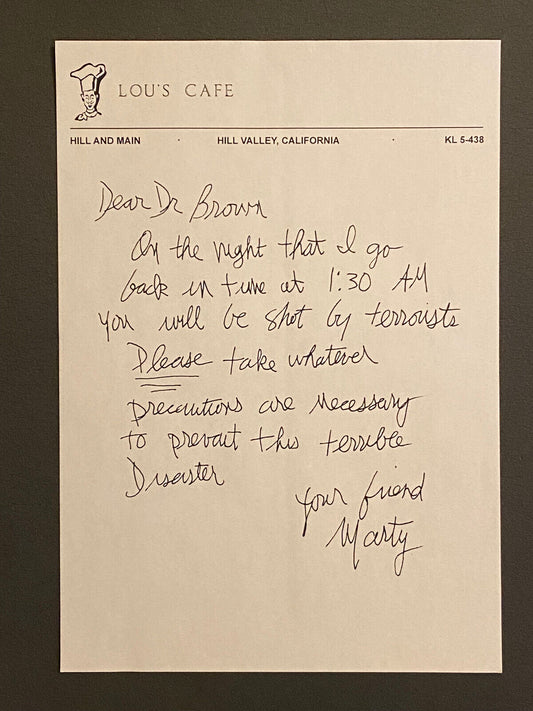 LOU'S CAFE
HILL AND MAIN · HILL VALLEY, CALIFORNIA · KL 5-438
Dear Dr Brown
On the night that I go
back in time at 1:30 AM
you will be shot by terrorists
Please take whatever
precautions are necessary
to prevent this terrible
Disaster
Your friend
Marty